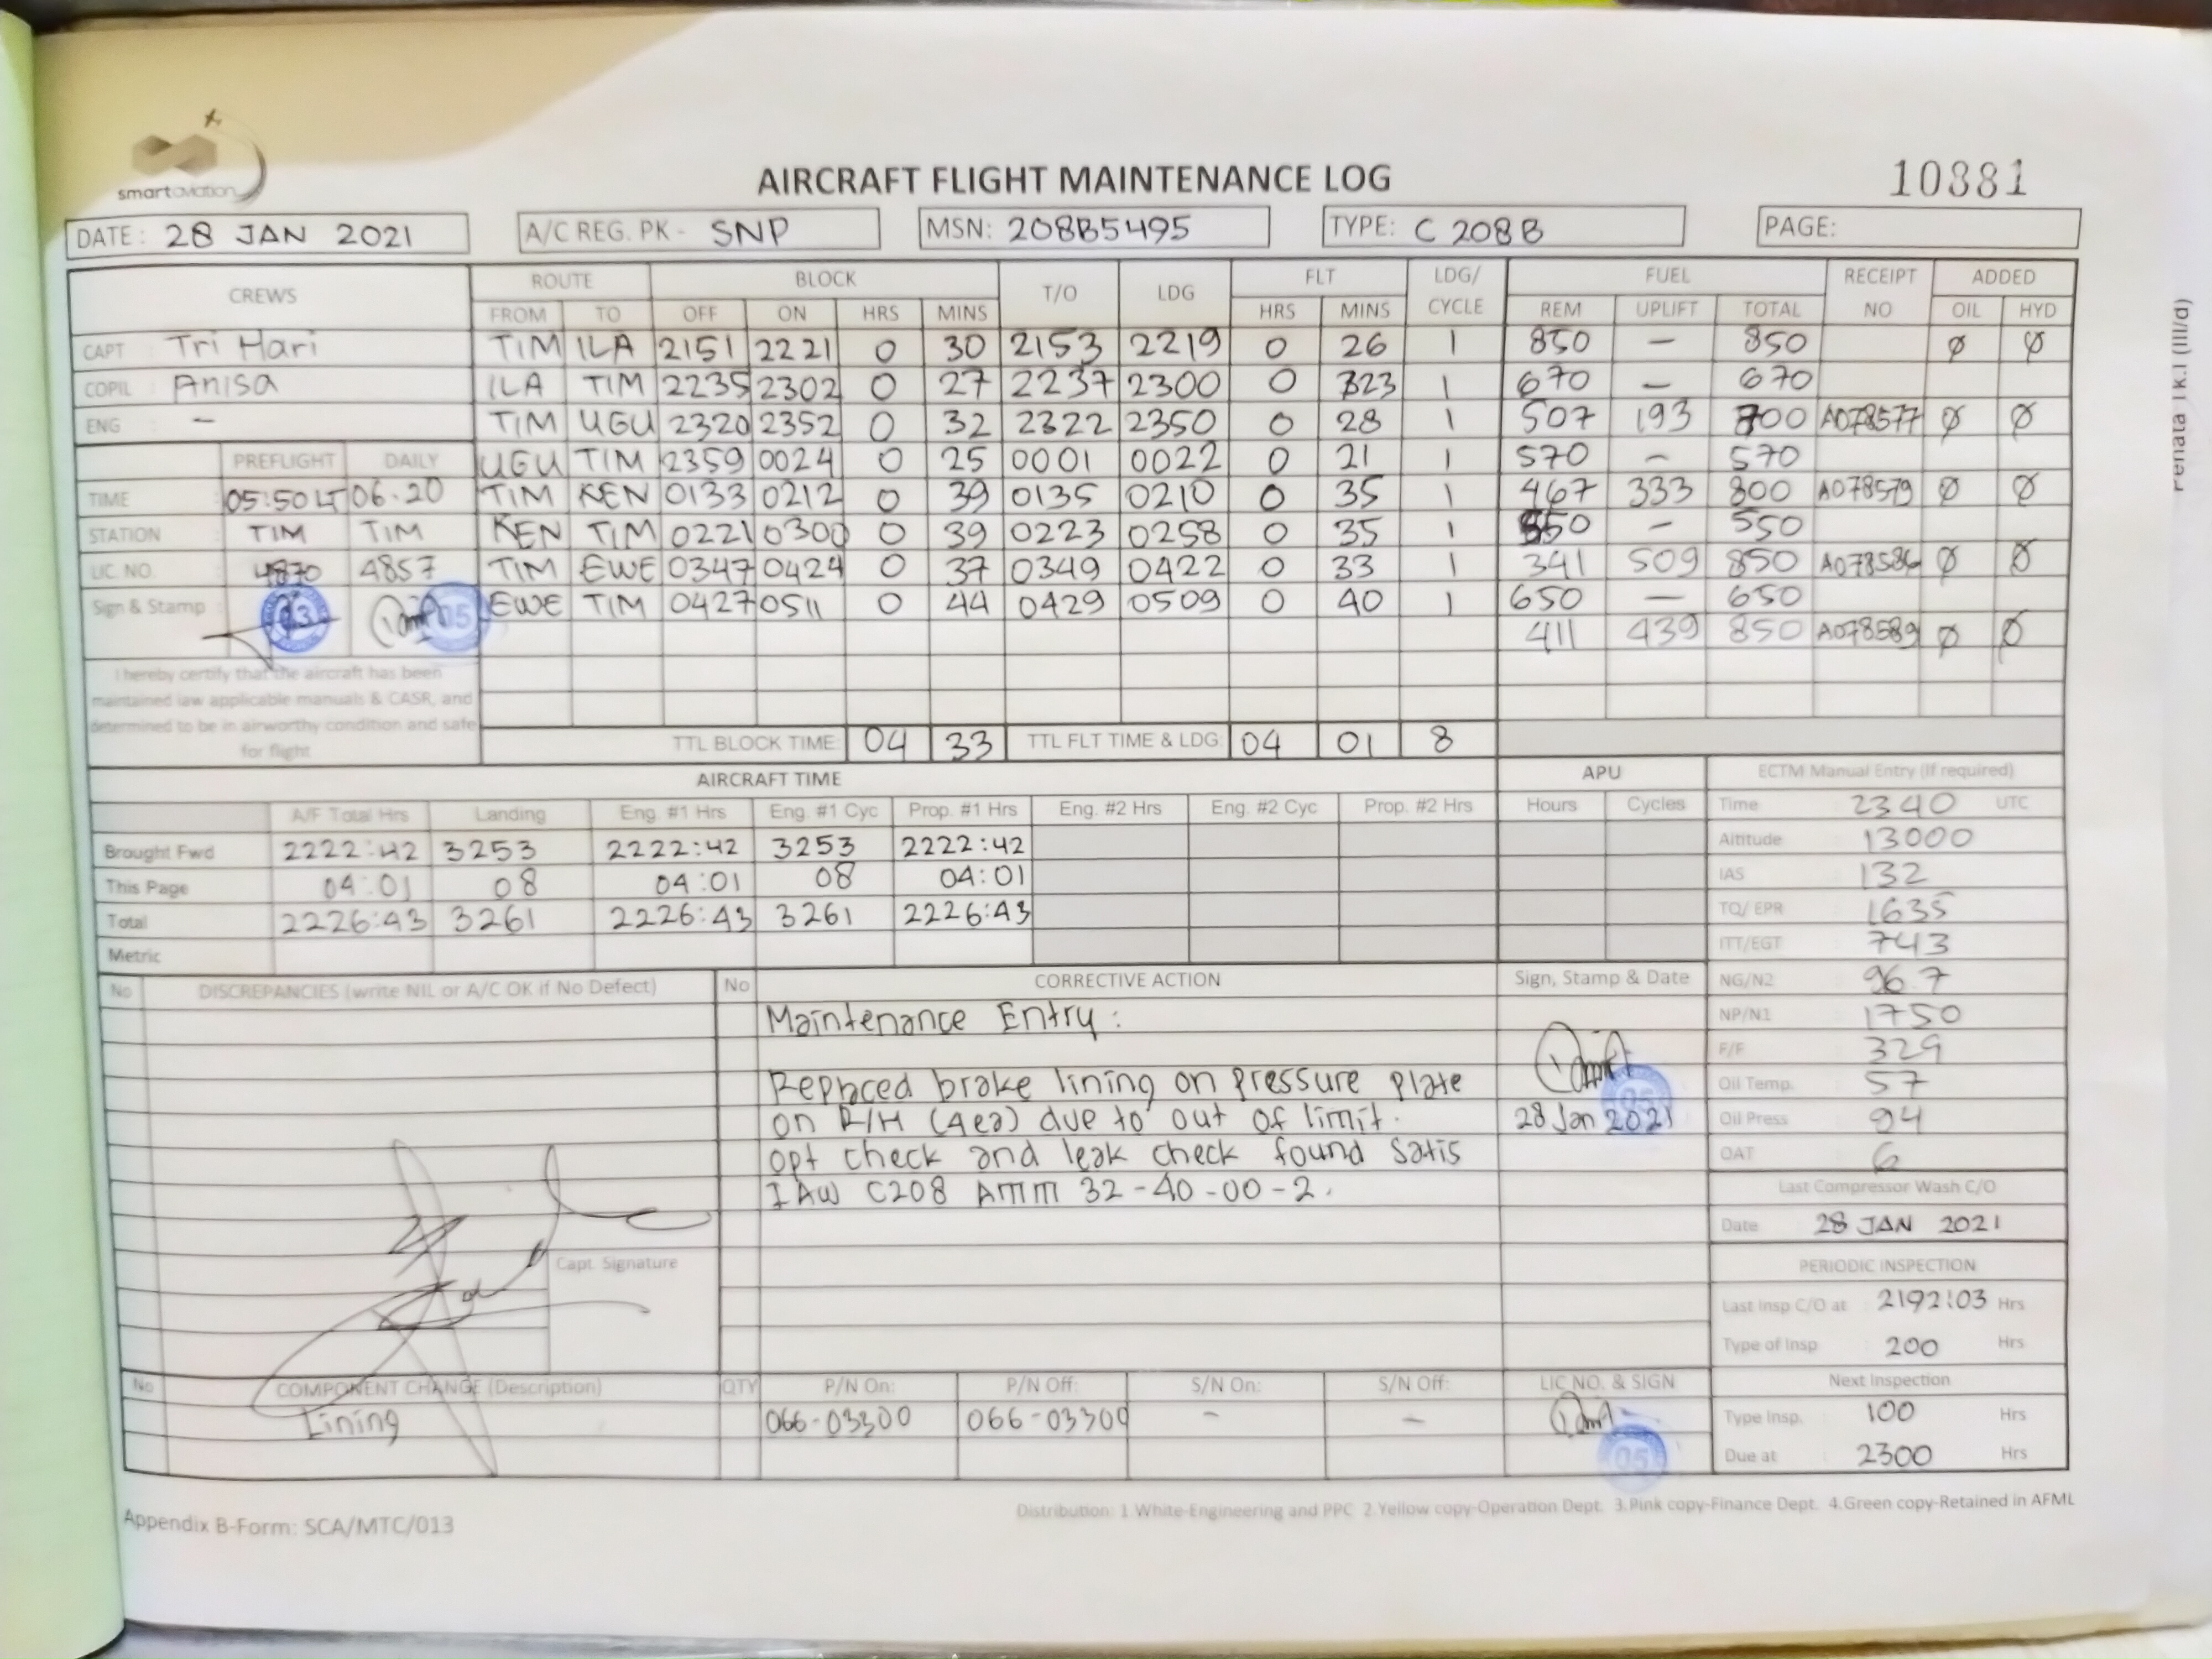 smart aviation
AIRCRAFT FLIGHT MAINTENANCE LOG
10881
DATE: 28 JAN 2021 A/C REG. PK - SNP MSN: 208B5495 TYPE: C 208B PAGE:
CREWS ROUTE BLOCK T/O LDG FLT LDG/ CYCLE FUEL RECEIPT NO ADDED
FROM TO OFF ON HRS MINS HRS MINS REM UPLIFT TOTAL OIL HYD
CAPT : Tri Hari TIM ILA 2151 2221 0 30 2153 2219 0 26 1 850 - 850 Ø Ø
COPIL : Anisa ILA TIM 2235 2302 0 27 2237 2300 0 23 1 670 - 670
ENG : - TIM UGU 2320 2352 0 32 2322 2350 0 28 1 507 193 700 A078577 Ø Ø
PREFLIGHT DAILY UGU TIM 2359 0024 0 25 0001 0022 0 21 1 570 - 570
TIME : 05:50 LT 06.20 TIM KEN 0133 0212 0 39 0135 0210 0 35 1 467 333 800 A078579 Ø Ø
STATION : TIM TIM KEN TIM 0221 0300 0 39 0223 0258 0 35 1 550 - 550
LIC. NO. : 4870 4857 TIM EWE 0347 0424 0 37 0349 0422 0 33 1 341 509 850 A078586 Ø Ø
Sign & Stamp : 05 EWE TIM 0427 0511 0 44 0429 0509 0 40 1 650 - 650
411 439 850 A078589 Ø Ø
I hereby certify that the aircraft has been
maintained iaw applicable manuals & CASR, and
determined to be in airworthy condition and safe
for flight
TTL BLOCK TIME: 04 33 TTL FLT TIME & LDG: 04 01 8
AIRCRAFT TIME APU
A/F Total Hrs Landing Eng. #1 Hrs Eng. #1 Cyc Prop. #1 Hrs Eng. #2 Hrs Eng. #2 Cyc Prop. #2 Hrs Hours Cycles
Brought Fwd 2222:42 3253 2222:42 3253 2222:42
This Page 04:01 08 04:01 08 04:01
Total 2226:43 3261 2226:43 3261 2226:43
Metric
ECTM Manual Entry (If required)
Time : 2340 UTC
Altitude : 13000
IAS : 132
TQ/ EPR : 1635
ITT/EGT : 743
NG/N2 : 96.7
NP/N1 : 1750
F/F : 329
Oil Temp. : 57
Oil Press : 94
OAT : 6
Last Compressor Wash C/O
Date : 28 JAN 2021
PERIODIC INSPECTION
Last Insp C/O at : 2192:03 Hrs
Type of Insp : 200 Hrs
Next Inspection
Type Insp. : 100 Hrs
Due at : 2300 Hrs
No DISCREPANCIES (write NIL or A/C OK if No Defect) No CORRECTIVE ACTION Sign, Stamp & Date
Maintenance Entry :
Replaced brake lining on pressure plate
on R/H (4ea) due to out of limit. 28 Jan 2021
opt check and leak check found satis
IAW C208 AMM 32-40-00-2.
Capt. Signature
No COMPONENT CHANGE (Description) QTY P/N On: P/N Off: S/N On: S/N Off: LIC NO. & SIGN
Lining 066-03300 066-03300 - -
05
Appendix B-Form: SCA/MTC/013
Distribution: 1.White-Engineering and PPC 2.Yellow copy-Operation Dept. 3.Pink copy-Finance Dept. 4.Green copy-Retained in AFML